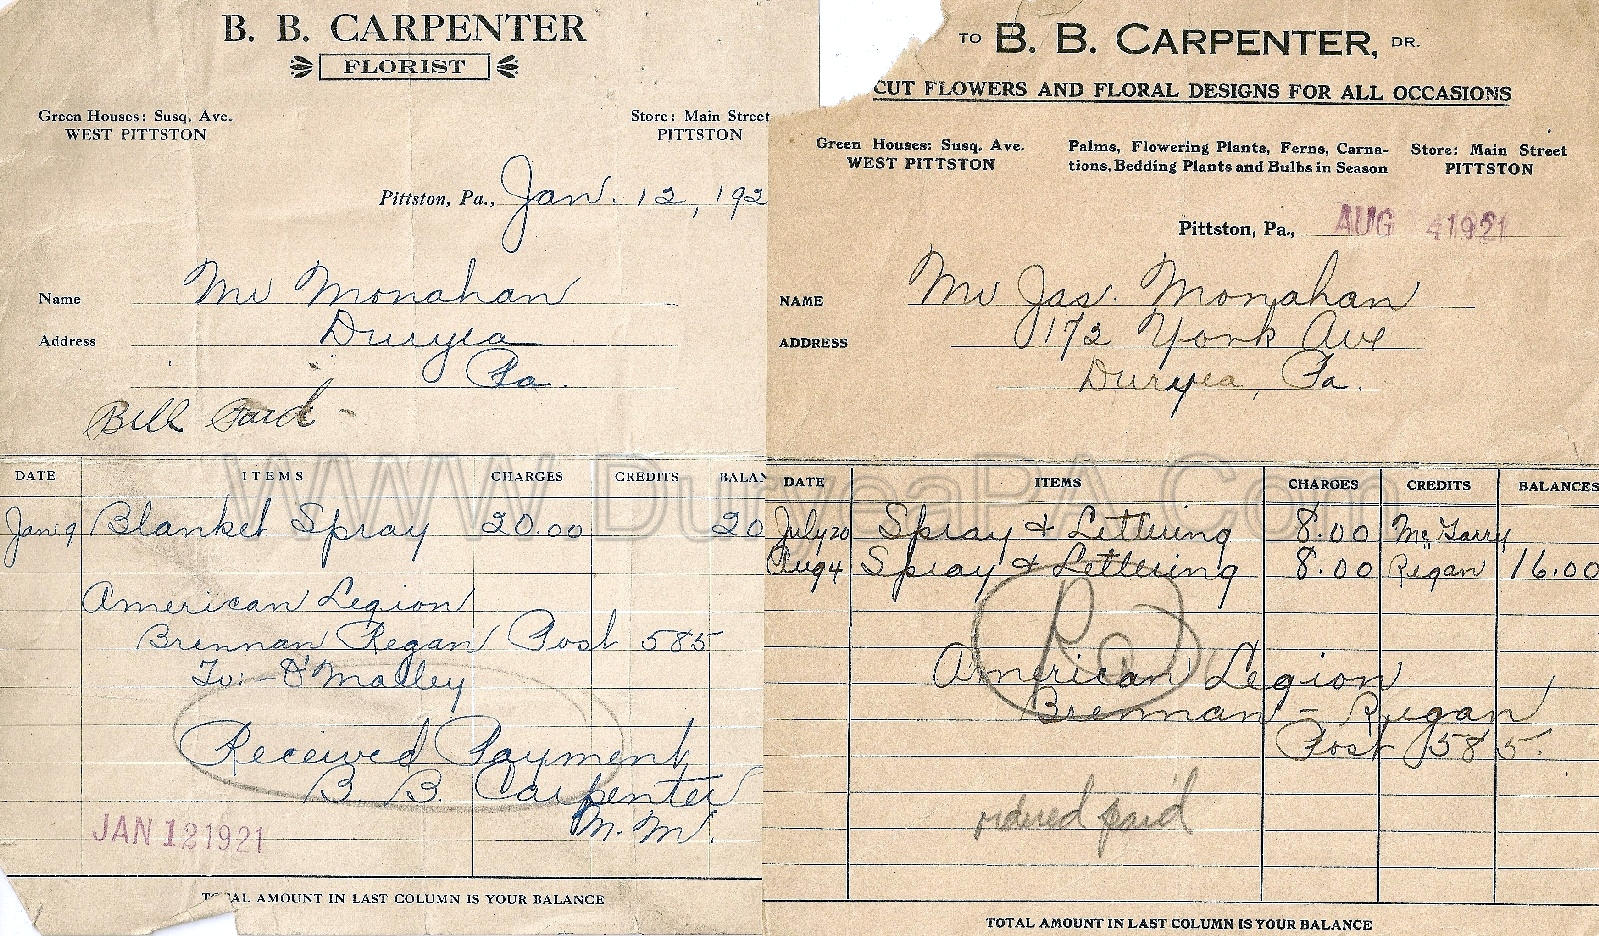 B. B. CARPENTER
FLORIST
Green Houses: Susq. Ave.
WEST PITTSTON
Store: Main Street
PITTSTON
Pittston, Pa., Jan. 12, 192
Name Mr Monahan
Address Duryea
Pa.
Bill Paid -
DATE ITEMS CHARGES CREDITS BALAN
Jan 9 Blanket Spray 20.00 20
American Legion
Brennan Regan Post 585
To:- O'Malley
Received Payment
B. B. Carpenter
M. Mc.
JAN 12 1921
TOTAL AMOUNT IN LAST COLUMN IS YOUR BALANCE
TO B. B. CARPENTER, DR.
CUT FLOWERS AND FLORAL DESIGNS FOR ALL OCCASIONS
Green Houses: Susq. Ave.
WEST PITTSTON
Palms, Flowering Plants, Ferns, Carna-
tions, Bedding Plants and Bulbs in Season
Store: Main Street
PITTSTON
Pittston, Pa., AUG 4 1921
NAME Mr Jas. Monahan
ADDRESS 172 York Ave
Duryea, Pa.
DATE ITEMS CHARGES CREDITS BALANCES
July 20 Spray & Lettering 8.00 McGarry
Aug 4 Spray & Lettering 8.00 Regan 16.00
American Legion
Brennan - Regan
Post 585.
ordered paid
TOTAL AMOUNT IN LAST COLUMN IS YOUR BALANCE
WWW.DuryeaPA.Com